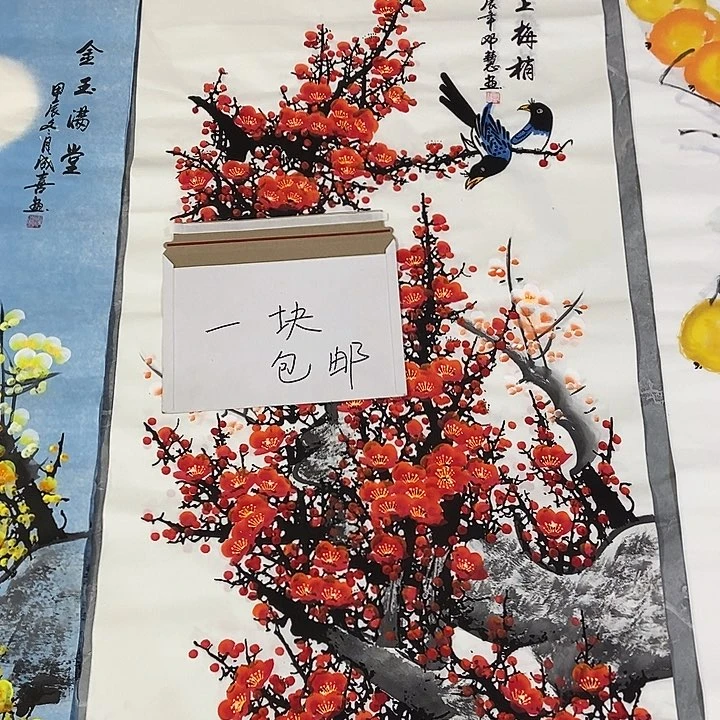 金玉满堂
甲辰冬月成喜画
上梅梢
辰年邓慧画
一块
包邮